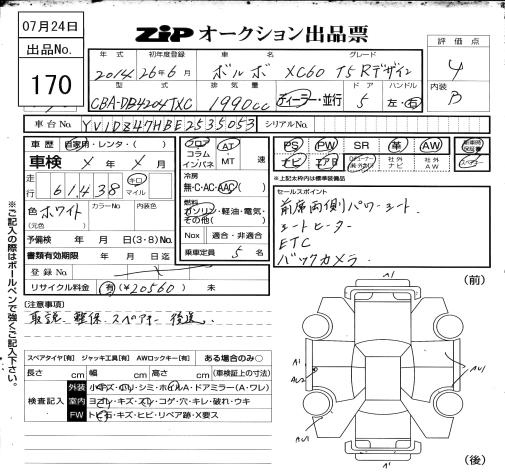 07月24日
出品No.
170
ZiP オークション出品票
評価点
4
内装
B
年式 初年度登録 車名 グレード
2014 26年6月 ボルボ XC60 T5 Rデザイン
型式 排気量 ドア ハンドル
CBA-DB4204TXC 1990cc ディーラー・並行 5 左・右
車台No. YV1DZ47HBE2535053 シリアルNo.
車歴 自家用・レンタ・( )
車検 X年 X月
走行 61,438 キロ マイル
色 ホワイト カラーNo. 内装色
(元色)
予備検 年 月 日(3・8)No.
書類有効期限 年 月 日迄
登録No.
リサイクル料金 有(¥20560) 未
フロア コラム インパネ AT・MT 速
冷房
無・C・AC・AAC
燃料
ガソリン・軽油・電気・その他( )
Nox 適合・非適合
乗車定員 5名
PS PW SR 革 AW 新車時保証書
ナビ エアB 社外ナビ 社外AW
*上記太枠内は標準装備品
セールスポイント
前席両側パワーシート
シートヒーター
ETC
バックカメラ.
[注意事項]
取説、整保、スペアキー 後送。
スペアタイヤ[有] ジャッキ工具[有] AWロックキー[有] ある場合のみ○
長さ cm 幅 cm 高さ cm (車検証上の寸法)
検査記入
外装 小キズ・ヘコ・シミ・ホイルA・ドアミラー(A・ワレ)
室内 ヨゴレ・キズ・スレ・コゲ・穴・キレ・破れ・ウキ
FW トビ石・キズ・ヒビ・リペア跡・X要ス
※ご記入の際はボールペンで強くご記入下さい。
(前)
A1
A1
AU2
AU1
AU1
A1
(後)